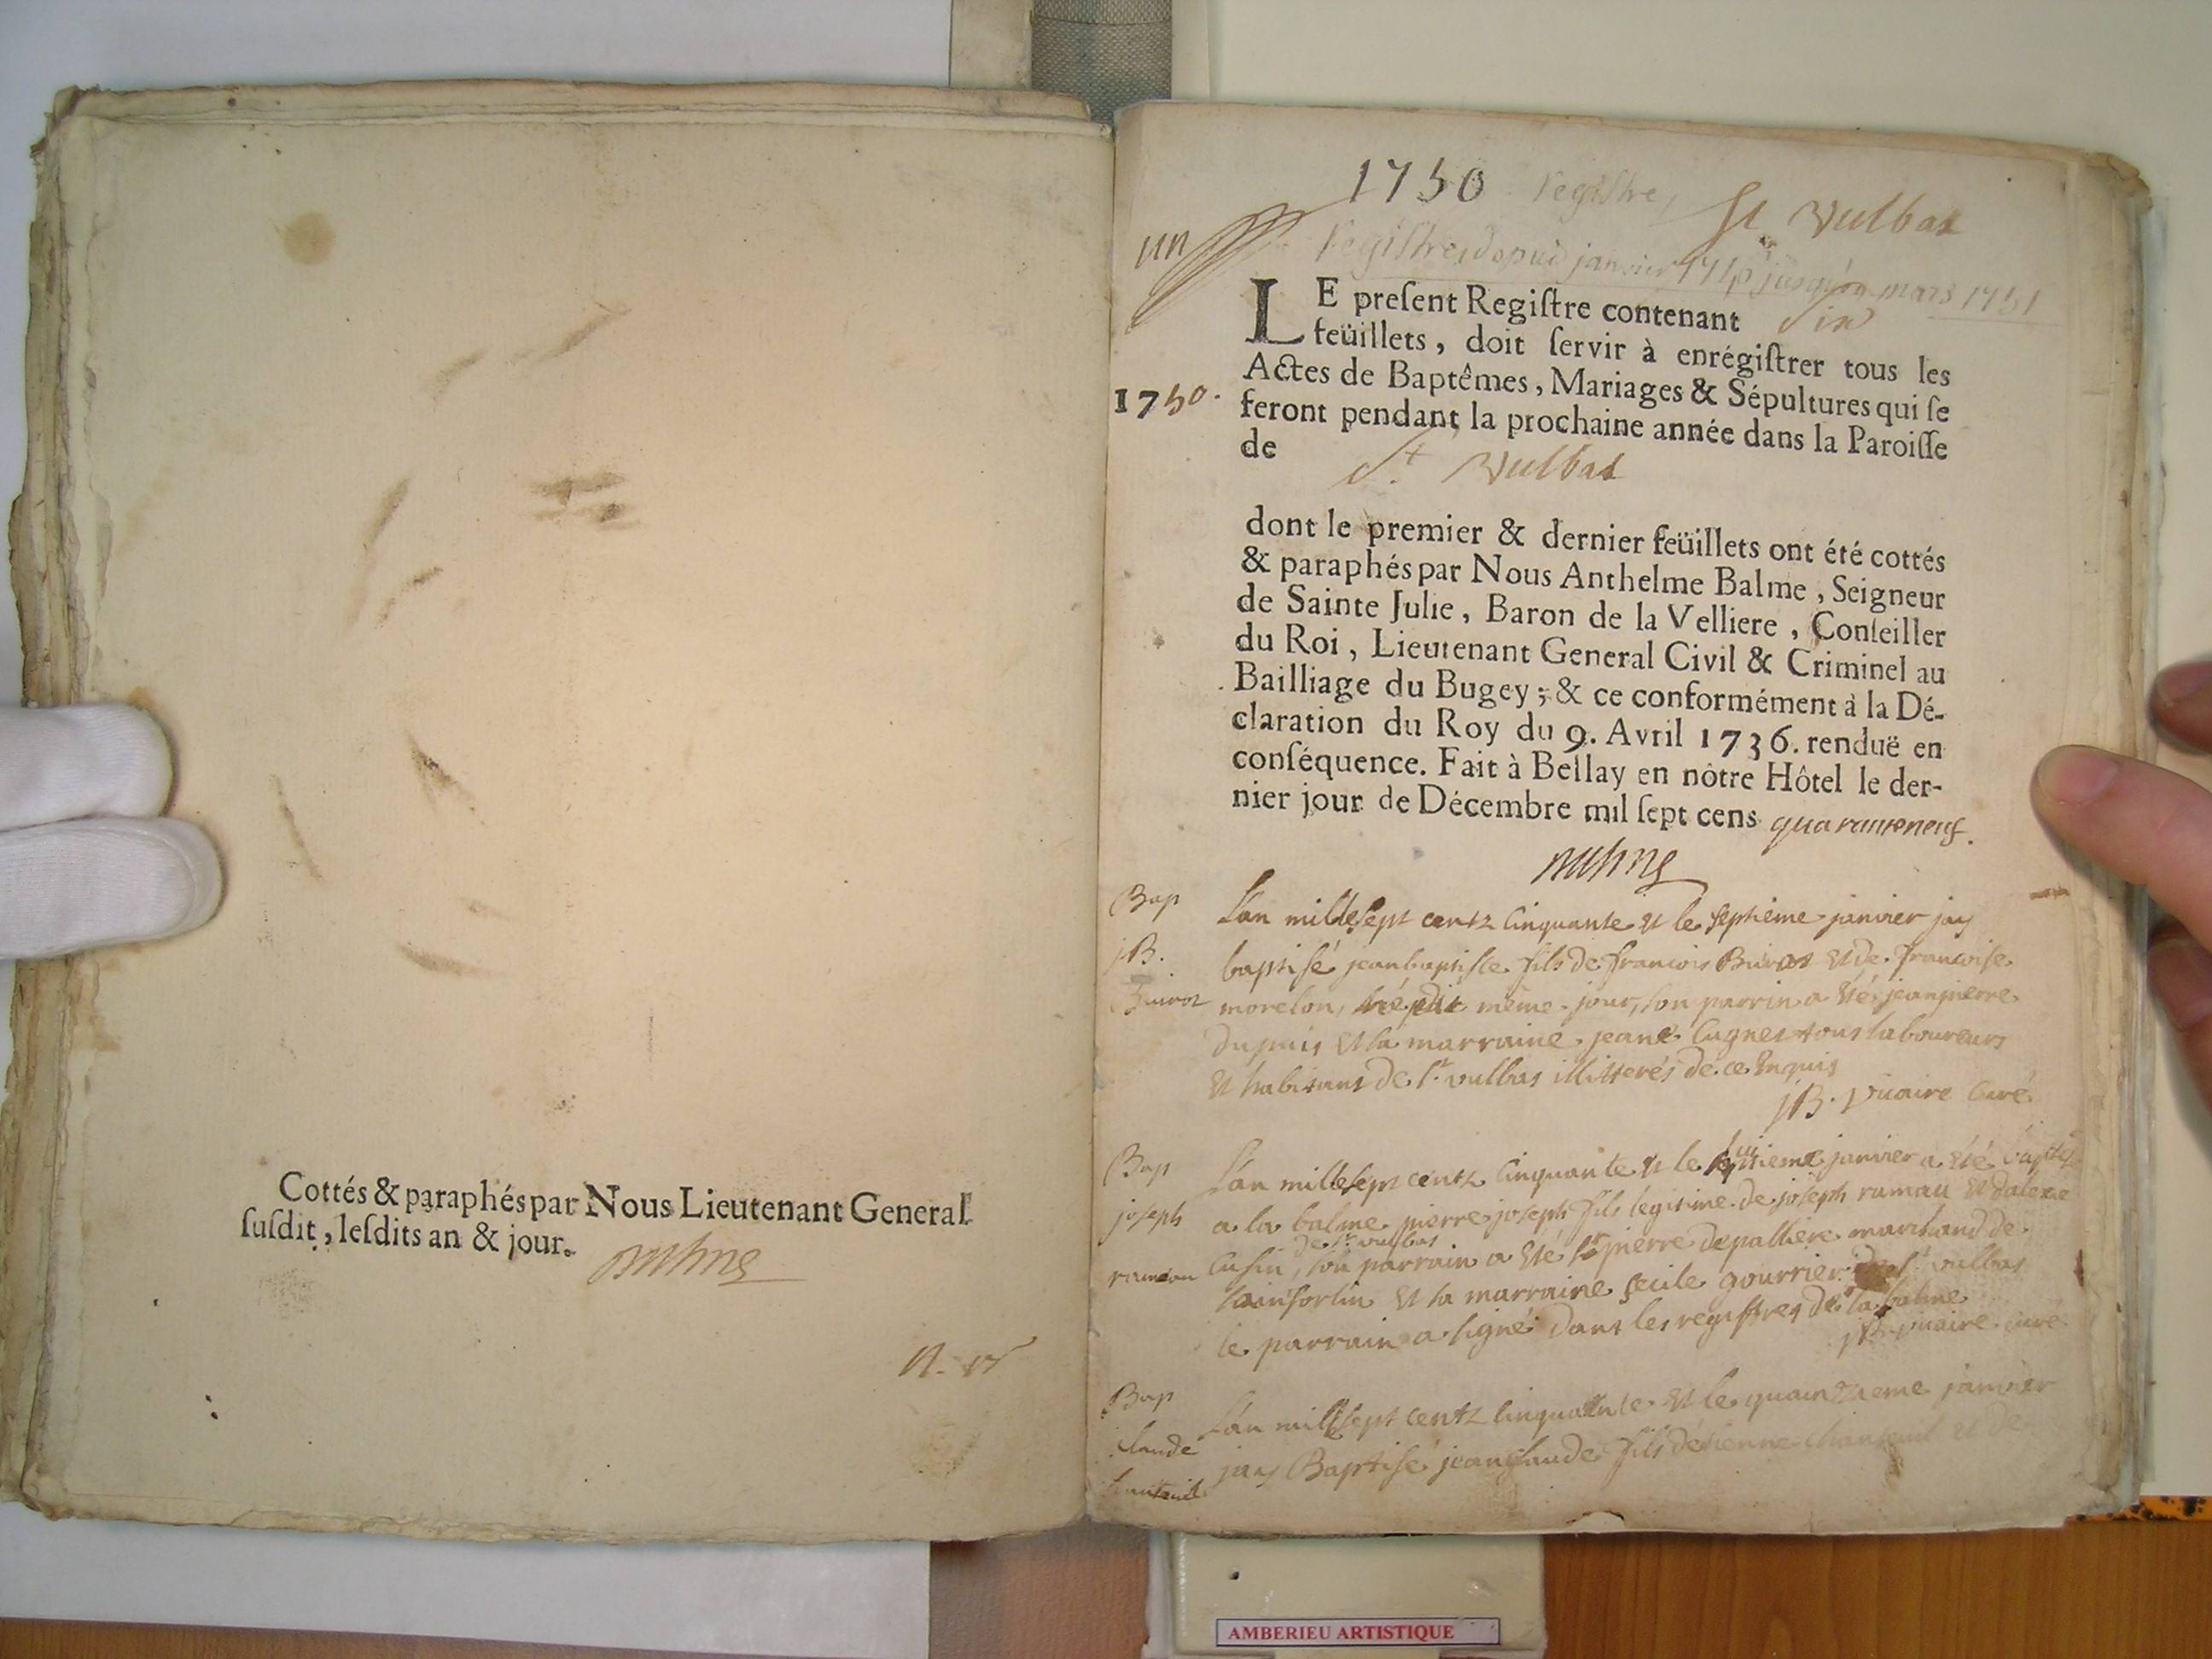 Cottés & paraphés par Nous Lieutenant General
ſuſdit, leſdits an & jour.
1750 Regiſtre
St Vulbas
un
Regiſtres depuis janvier jusqu'en mars 1751
LE preſent Regiſtre contenant Six
feüillets, doit ſervir à enrégiſtrer tous les
Actes de Baptêmes, Mariages & Sépultures qui ſe
1750.
feront pendant la prochaine année dans la Paroiſſe
de St Vulbas
dont le premier & dernier feüillets ont été cottés
& paraphés par Nous Anthelme Balme, Seigneur
de Sainte Julie, Baron de la Velliere, Conſeiller
du Roi, Lieutenant General Civil & Criminel au
Bailliage du Bugey; & ce conformément à la Dé-
claration du Roy du 9. Avril 1736. renduë en
conſéquence. Fait à Bellay en nôtre Hôtel le der-
nier jour de Décembre mil ſept cens quaranteneuf.
Bap
jB.
L'an mille sept centz cinquante et le septième janvier jay
baptisé jean baptiste fils de francois et de francoise
morelon, même jour, son parrin a été jean pierre
dupuis et la marraine jeane tous laboureurs
et habitans de St vulbas illitterés de ce enquis
jB. vuaire curé
Bap
joseph
rameau
L'an mille sept centz cinquante et le huitieme janvier a été baptisé
a la balme pierre joseph fils legitime de joseph ramau et
de St vulbas
cusin, son parrain a été Sr pierre depalliere marchand de
et la marraine cecile gourrier de St vulbas
le parrain a signé dans les registres de la balme
jB. vuaire curé
Bap
claude
L'an mille sept centz cinquante et le quainzieme janvier
jay Baptisé jean claude fils détienne et de
AMBERIEU ARTISTIQUE